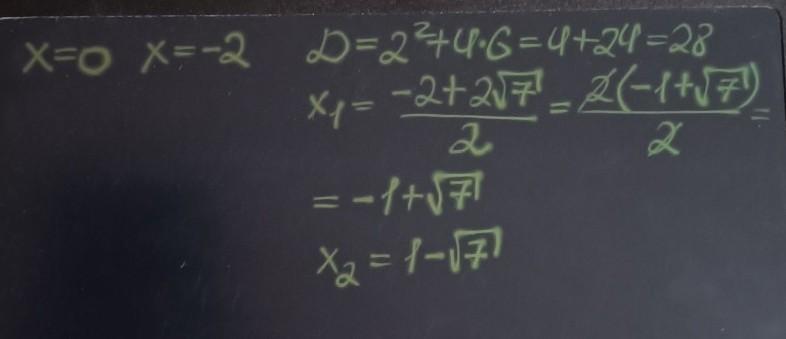 x=0 x=-2 D=2²+4·6=4+24=28
x₁= (-2+2√7)/2 = 2(-1+√7)/2 =
= -1+√7
x₂=1-√7